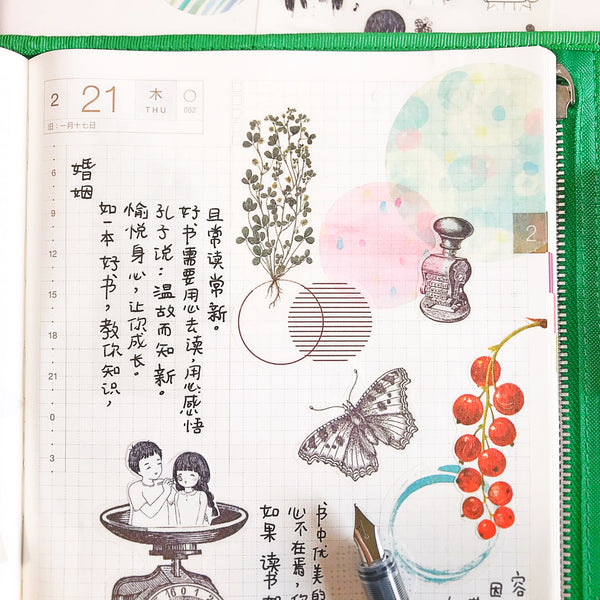 2
21
木
THU
052
旧：一月十七日
6
9
12
15
18
21
0
3
婚姻
如一本好书，教你知识，
愉悦身心，让你成长。
孔子说：温故而知新。
好书需要用心去读，用心感悟
且常读常新。
2
如果读书
心不在焉，你
书中优美的
因
容